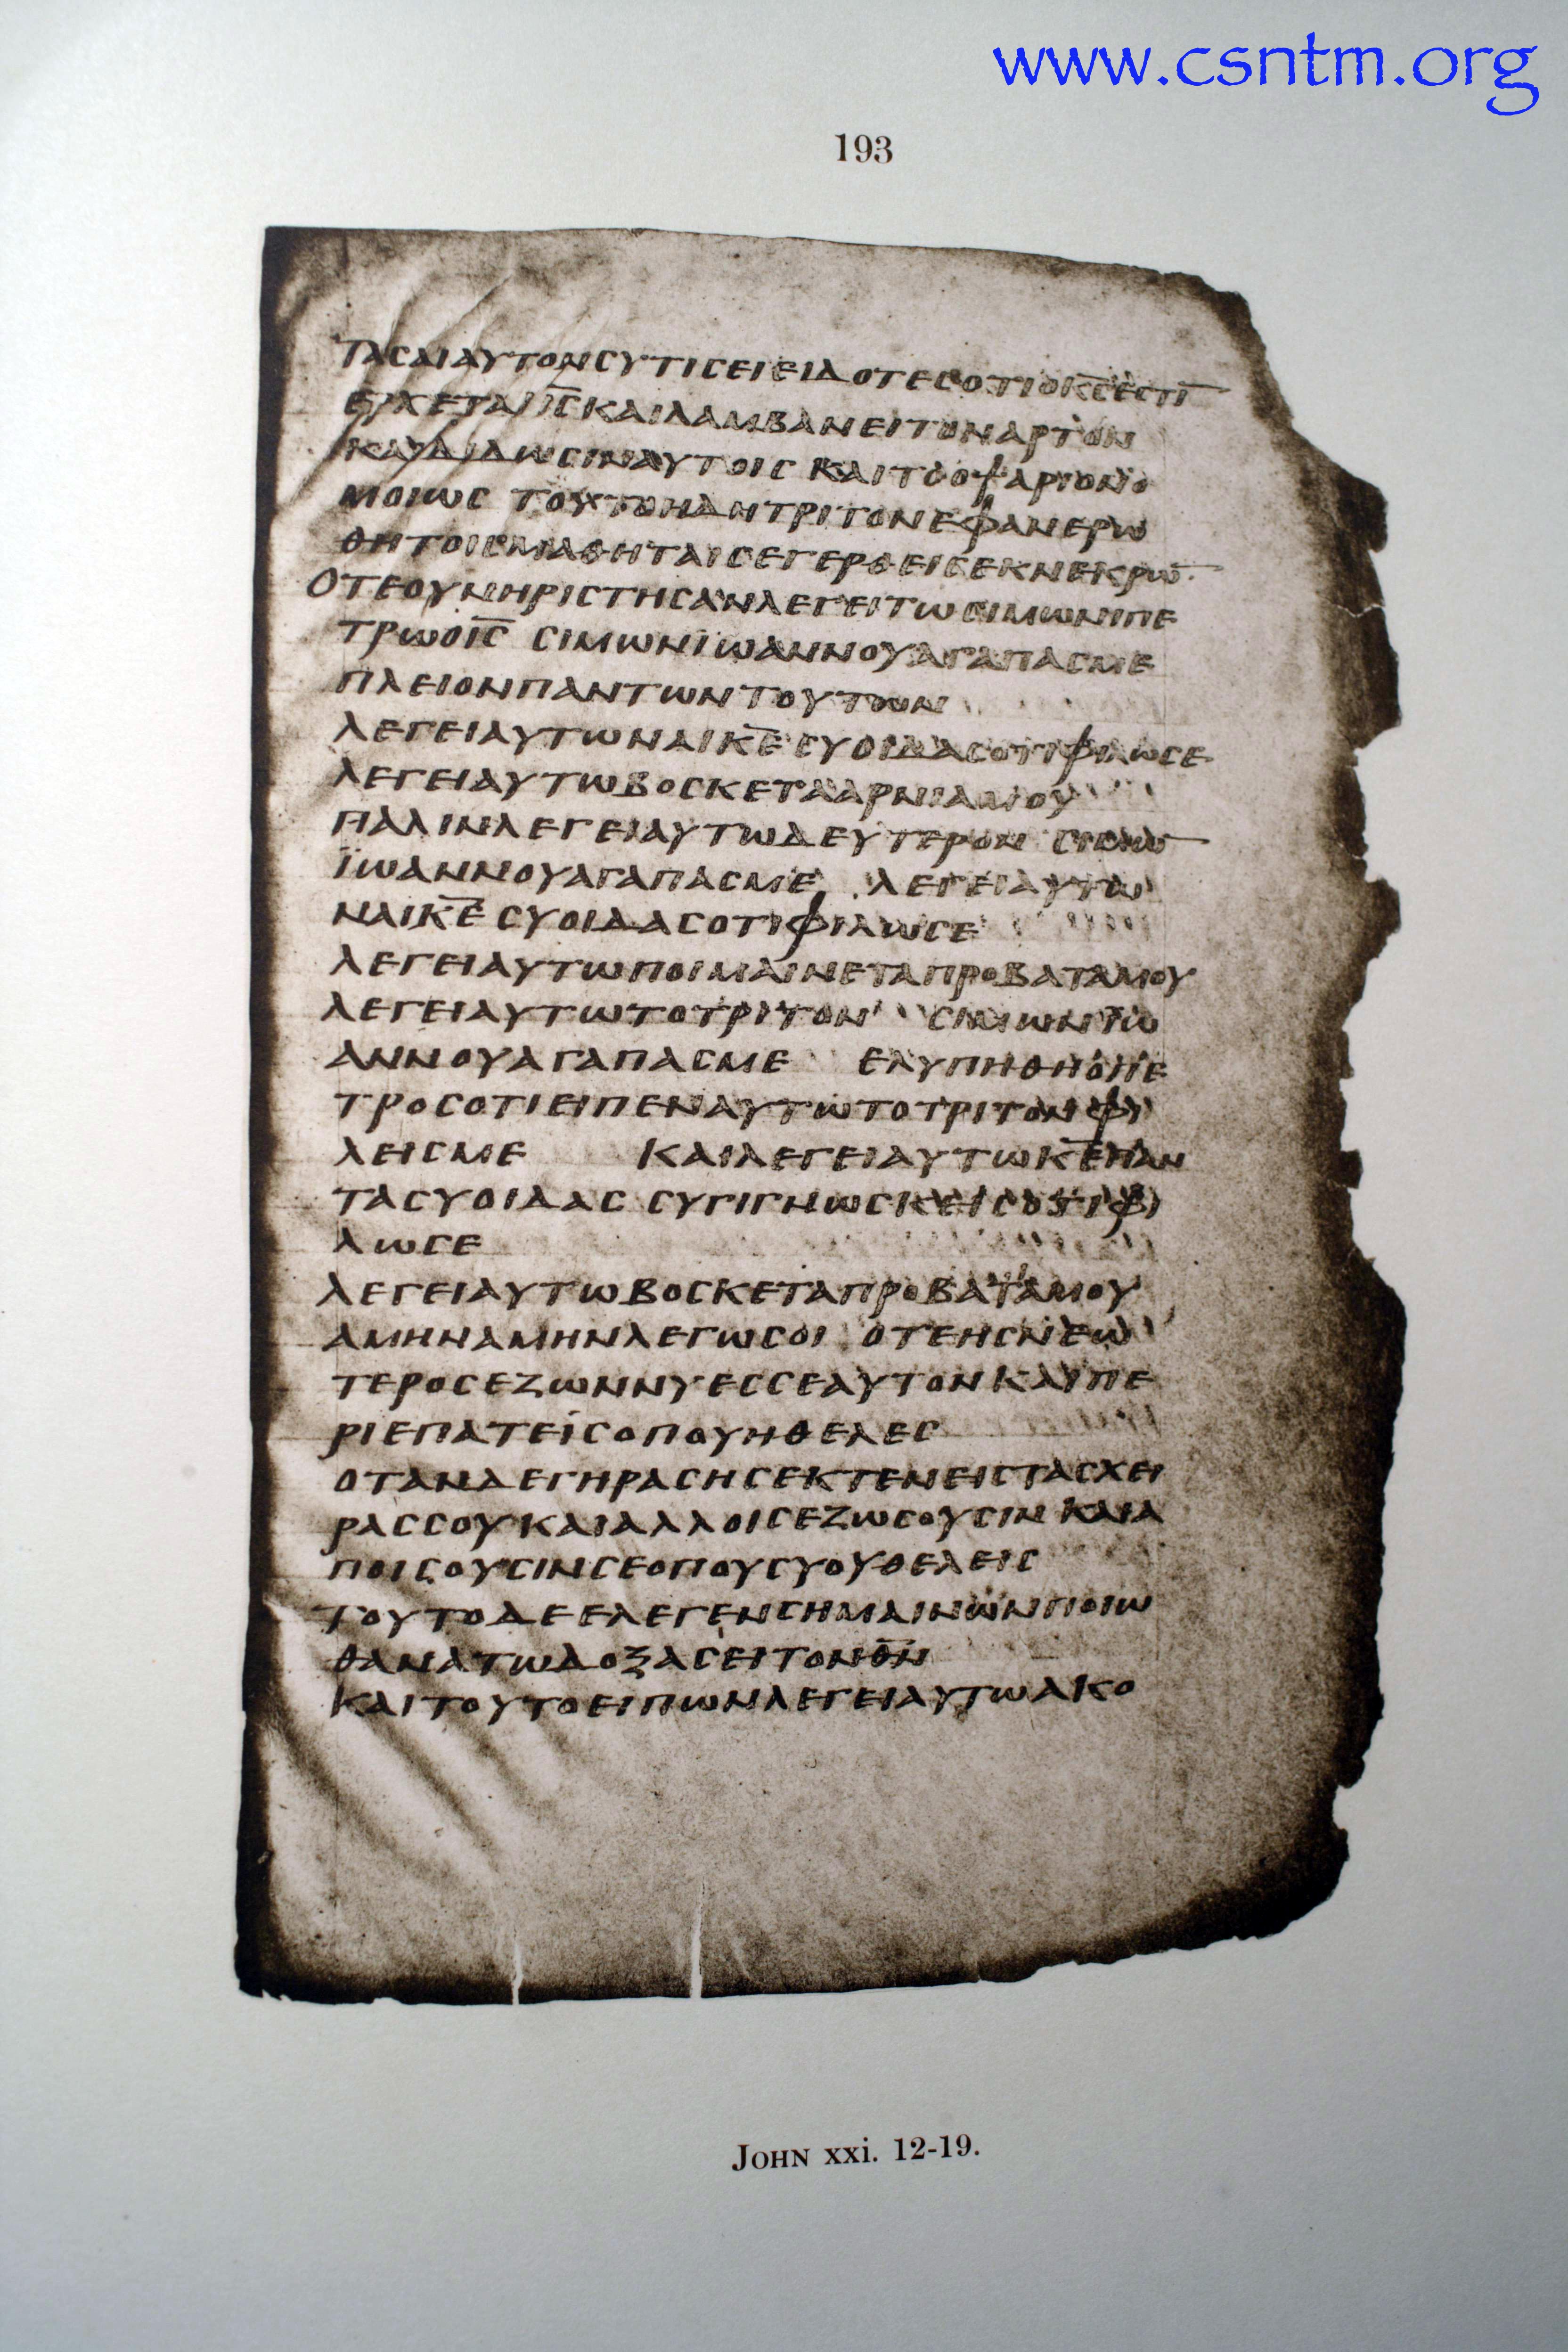 www.csntm.org
193
ΤΑΣΑΙΑΥΤΟΝϹΥΤΙϹΕΙΕΙΔΟΤΕϹΟΤΙΟΚ̅Ϲ̅ΕϹΤΙ̅
ΕΡΧΕΤΑΙΙ̅Ϲ̅ΚΑΙΛΑΜΒΑΝΕΙΤΟΝΑΡΤΟΝ
ΚΑΙΔΙΔΩϹΙΝΑΥΤΟΙϹ ΚΑΙΤΟΟΨΑΡΙΟΝΟ
ΜΟΙΩϹ ΤΟΥΤΟΗΔΗΤΡΙΤΟΝΕΦΑΝΕΡΩ
ΘΗΤΟΙϹΜΑΘΗΤΑΙϹΕΓΕΡΘΕΙϹΕΚΝΕΚΡΩ̅
ΟΤΕΟΥΝΗΡΙϹΤΗϹΑΝΛΕΓΕΙΤΩϹΙΜΩΝΙΠΕ
ΤΡΩΟΙ̅Ϲ̅ ϹΙΜΩΝΪΩΑΝΝΟΥΑΓΑΠΑϹΜΕ
ΠΛΕΙΟΝΠΑΝΤΩΝΤΟΥΤΩΝ
ΛΕΓΕΙΑΥΤΩΝΑΙΚ̅Ε̅ ϹΥΟΙΔΑϹΟΤΙΦΙΛΩϹΕ
ΛΕΓΕΙΑΥΤΩΒΟϹΚΕΤΑΑΡΝΙΑΜΟΥ
ΠΑΛΙΝΛΕΓΕΙΑΥΤΩΔΕΥΤΕΡΟΝ ϹΙΜΩ̅
ΪΩΑΝΝΟΥΑΓΑΠΑϹΜΕ ΛΕΓΕΙΑΥΤΩ
ΝΑΙΚ̅Ε̅ ϹΥΟΙΔΑϹΟΤΙΦΙΛΩϹΕ
ΛΕΓΕΙΑΥΤΩΠΟΙΜΑΙΝΕΤΑΠΡΟΒΑΤΑΜΟΥ
ΛΕΓΕΙΑΥΤΩΤΟΤΡΙΤΟΝ ϹΙΜΩΝΪΩ
ΑΝΝΟΥΑΓΑΠΑϹΜΕ ΕΛΥΠΗΘΗΟΠΕ
ΤΡΟϹΟΤΙΕΙΠΕΝΑΥΤΩΤΟΤΡΙΤΟΝΦΙ
ΛΕΙϹΜΕ ΚΑΙΛΕΓΕΙΑΥΤΩΚ̅Ε̅ΠΑΝ
ΤΑϹΥΟΙΔΑϹ ϹΥΓΙΓΝΩϹΚΕΙϹΟΤΙΦΙ
ΛΩϹΕ
ΛΕΓΕΙΑΥΤΩΒΟϹΚΕΤΑΠΡΟΒΑΤΑΜΟΥ
ΑΜΗΝΑΜΗΝΛΕΓΩϹΟΙ ΟΤΕΗϹΝΕΩ
ΤΕΡΟϹΕΖΩΝΝΥΕϹϹΕΑΥΤΟΝΚΑΙΠΕ
ΡΙΕΠΑΤΕΙϹΟΠΟΥΗΘΕΛΕϹ
ΟΤΑΝΔΕΓΗΡΑϹΗϹΕΚΤΕΝΕΙϹΤΑϹΧΕΙ
ΡΑϹϹΟΥΚΑΙΑΛΛΟΙϹΕΖΩϹΟΥϹΙΝΚΑΙΑ
ΠΟΙϹΟΥϹΙΝϹΕΟΠΟΥϹΥΟΥΘΕΛΕΙϹ
ΤΟΥΤΟΔΕΕΛΕΓΕΝϹΗΜΑΙΝΩΝΠΟΙΩ
ΘΑΝΑΤΩΔΟΞΑϹΕΙΤΟΝΘ̅Ν̅
ΚΑΙΤΟΥΤΟΕΙΠΩΝΛΕΓΕΙΑΥΤΩΑΚΟ
JOHN xxi. 12-19.